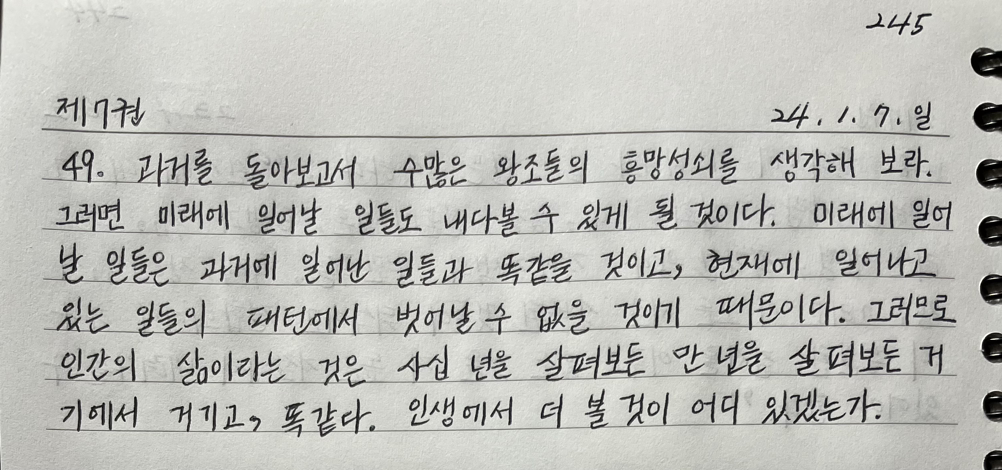 245
제7권 24. 1. 7. 일
49. 과거를 돌아보고서 수많은 왕조들의 흥망성쇠를 생각해 보라.
그러면 미래에 일어날 일들도 내다볼 수 있게 될 것이다. 미래에 일어
날 일들은 과거에 일어난 일들과 똑같을 것이고, 현재에 일어나고
있는 일들의 패턴에서 벗어날 수 없을 것이기 때문이다. 그러므로
인간의 삶이라는 것은 사십 년을 살펴보든 만 년을 살펴보든 거
기에서 거기고, 똑같다. 인생에서 더 볼 것이 어디 있겠는가.